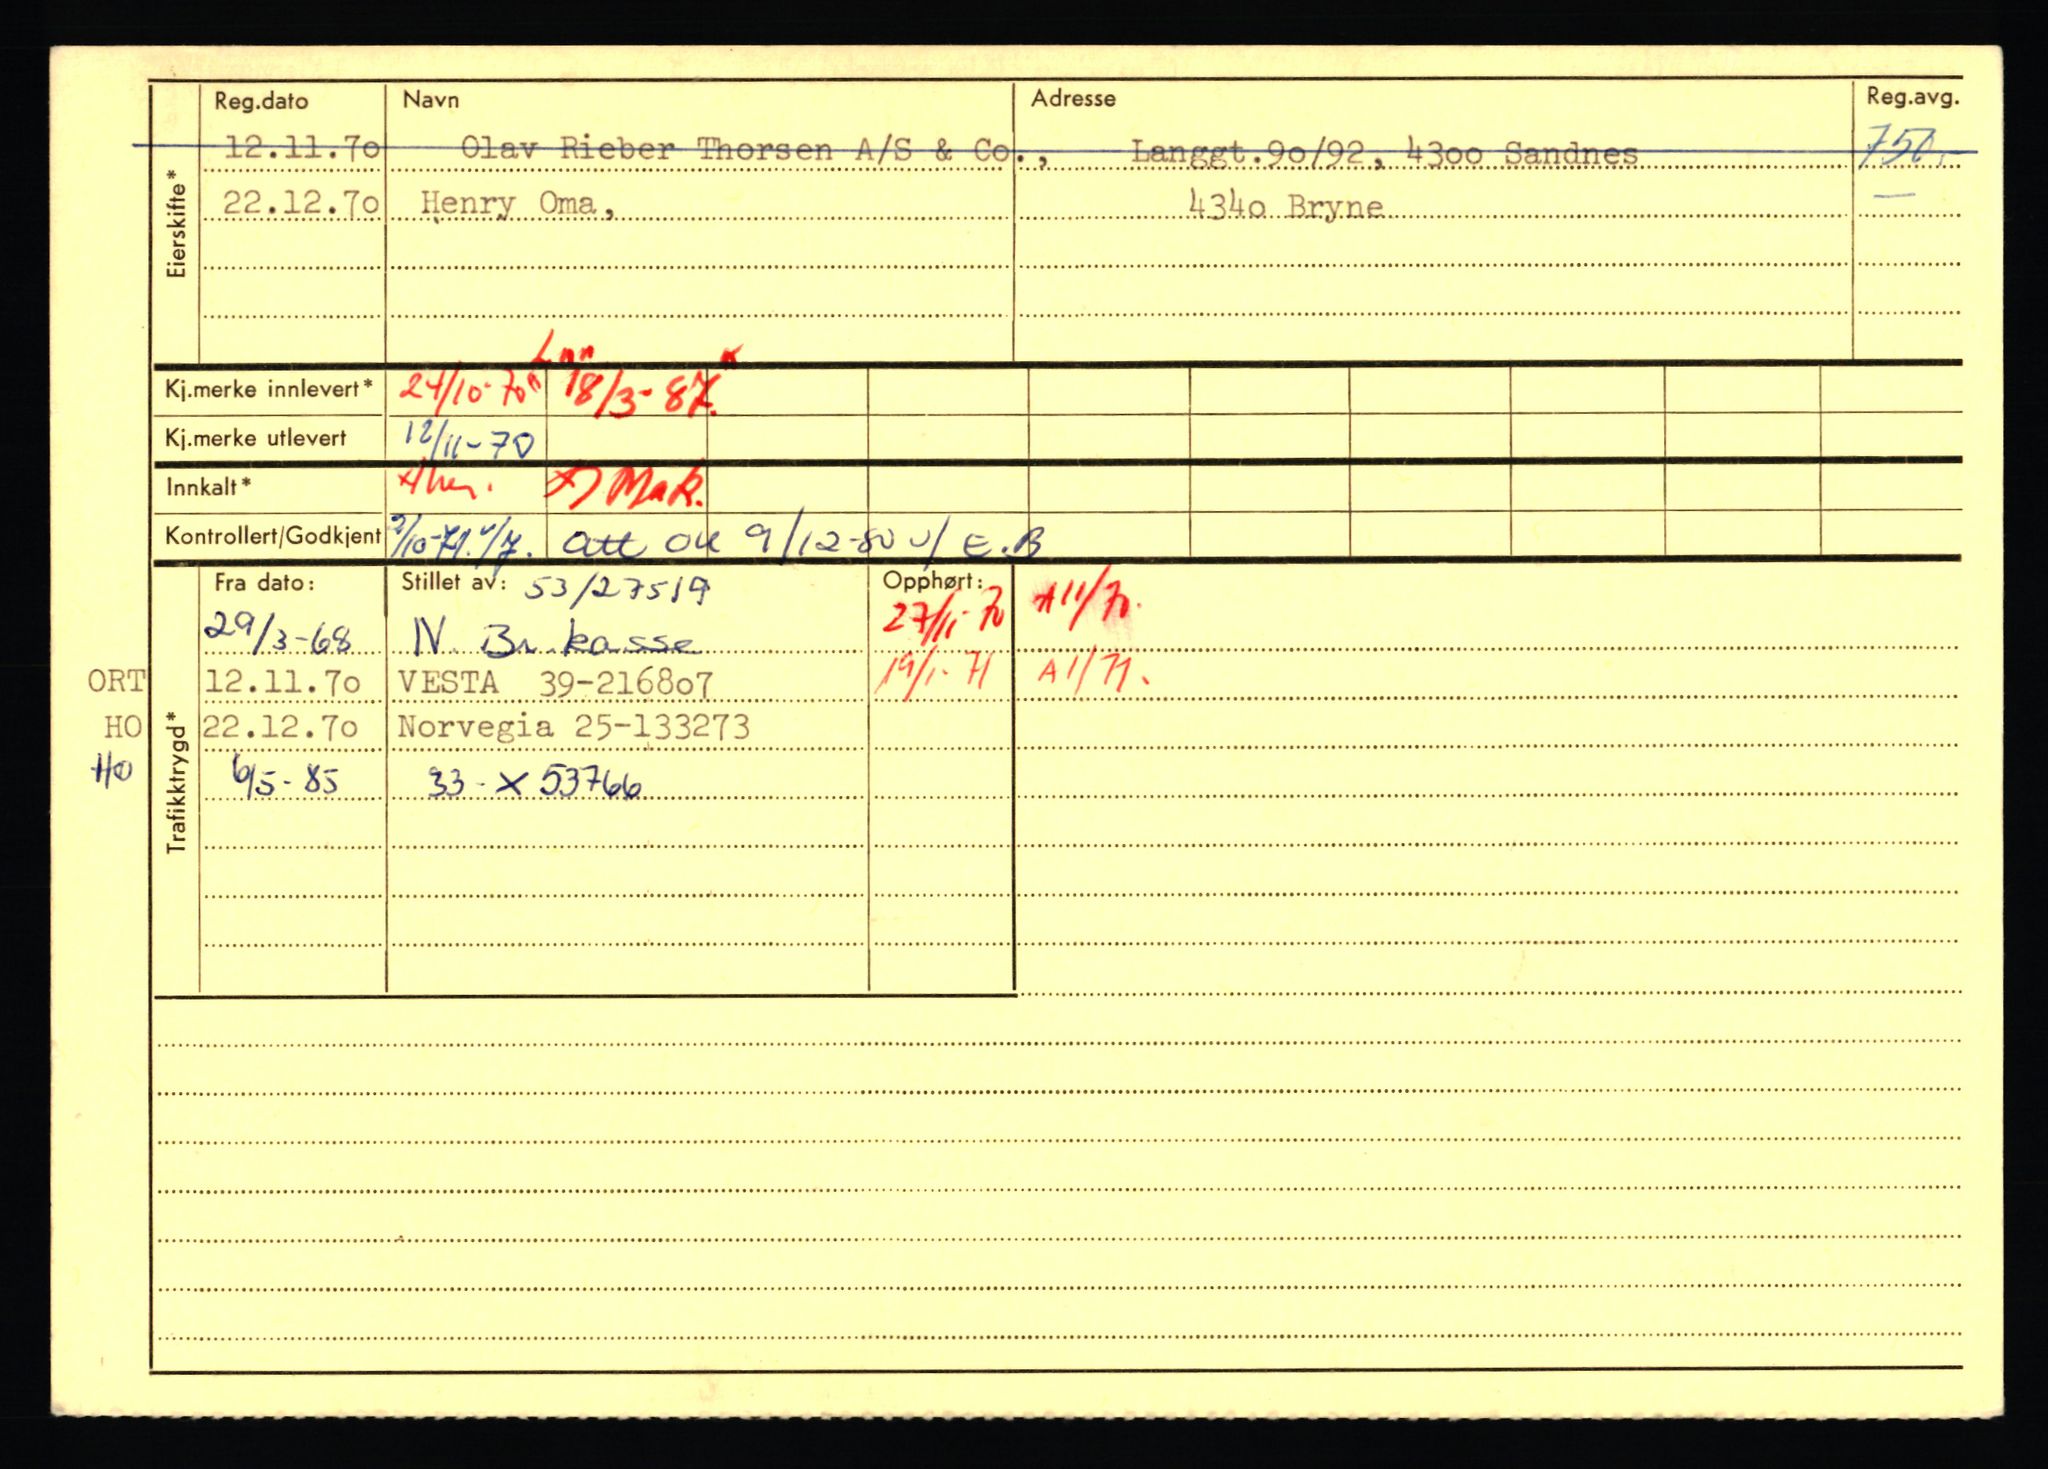 Reg.dato Navn Adresse Reg.avg.
12.11.70 Olav Rieber Thorsen A/S & Co., Langgt.90/92, 4300 Sandnes 750.-
22.12.70 Henry Oma, 4340 Bryne —
Eierskifte*
Kj.merke innlevert* 24/10-70 18/3-87.
Kj.merke utlevert 12/11-70
Innkalt*
Kontrollert/Godkjent att ok 9/12-80 v/ E.B
Trafikktrygd*
Fra dato: Stillet av: 53/27519 Opphørt:
29/3-68 N. Br.kasse 27/11-70 A11/70.
ORT 12.11.70 VESTA 39-216807 19/1-71 A1/71.
HO 22.12.70 Norvegia 25-133273
HO 6/5-85 33-X53766